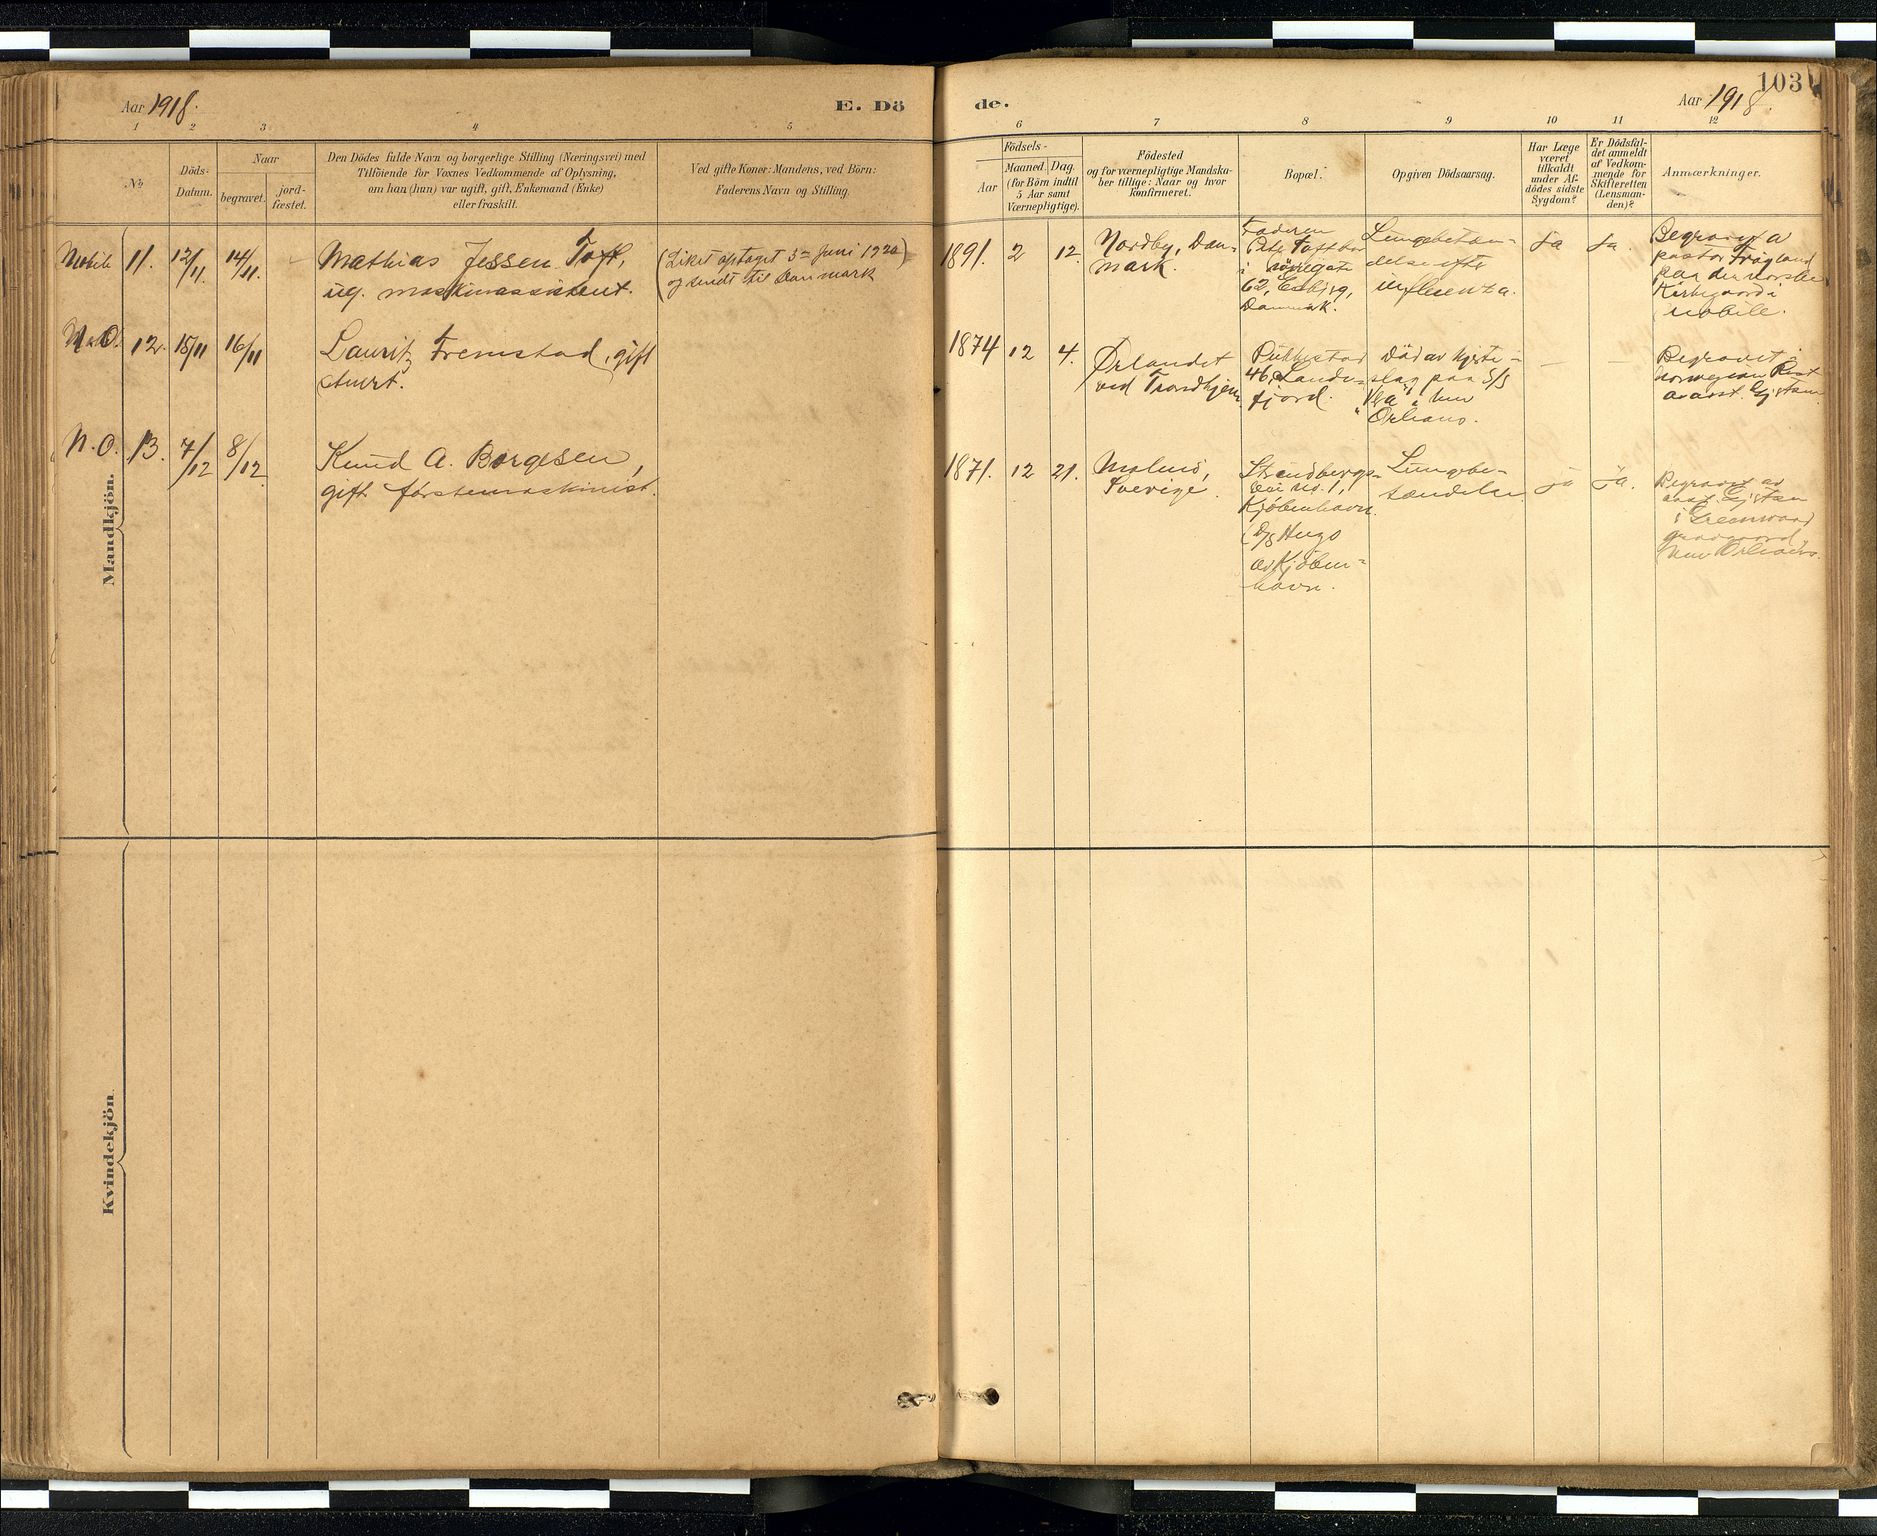 Aar 1918.
E. Dö
de.
Aar 1918.
103
1 2 3 4 5
6 7 8 9 10 11 12
No
Döds-
Datum.
Naar
begravet.
jord-
fæstet.
Den Dödes fulde Navn og borgerlige Stilling (Næringsvei) med
Tilföiende for Voxnes Vedkommende af Oplysning,
om han (hun) var ugift, gift, Enkemand (Enke)
eller fraskilt.
Ved gifte Koner: Mandens, ved Börn:
Faderens Navn og Stilling.
Födsels-
Aar
Maaned. Dag.
(for Börn indtil
5 Aar samt
Værnepligtige).
Födested
og for værnepligtige Mandska-
ber tillige: Naar og hvor
konfirmeret.
Bopæl.
Opgiven Dödsaarsag.
Har Læge
været
tilkaldt
under Af-
dödes sidste
Sygdom?
Er Dödsfal-
det anmeldt
af Vedkom-
mende for
Skifteretten
(Lensman-
den)?
Anmærkninger.
Mandkjön.
Mobile 11. 12/11 14/11.
Mathias Jessen Toft,
ug. maskinassistent.
(Liket optaget 3 Juni 1920)
og sendt til Danmark
1891. 2 12.
Nordby, Dan-
mark.
Faderen
Toft bor
i
62, Esbjerg,
Danmark.
Lungebetæn-
delse efter
influenza.
Ja Ja.
Begravet a
pastor Fragland
paa den norske
Kirkegaard i
Mobile.
N.O. 12. 15/11 16/11
Lauritz Fremstad, gift
stuert.
1874 12 4.
Ørlandet
ved Trondhjem
46,
fjord.
Död av hjerte-
slag paa S/S
New
Orleans.
Begravet i
Norwegian Rest
av asst.
N.O. 13. 7/12 8/12
Knud A. Borgesen,
gift førstemaskinist.
1871. 12 21.
Malmö,
Sverige.
Strindbergs-
vei no. 1,
Kjøbenhavn.
(D/S Hugo
av Kjøben-
havn.
Lungebe-
tændelse
ja ja.
Begravet av
asst.
i Greenwood
gravgaard,
New Orleans.
Kvindekjön.